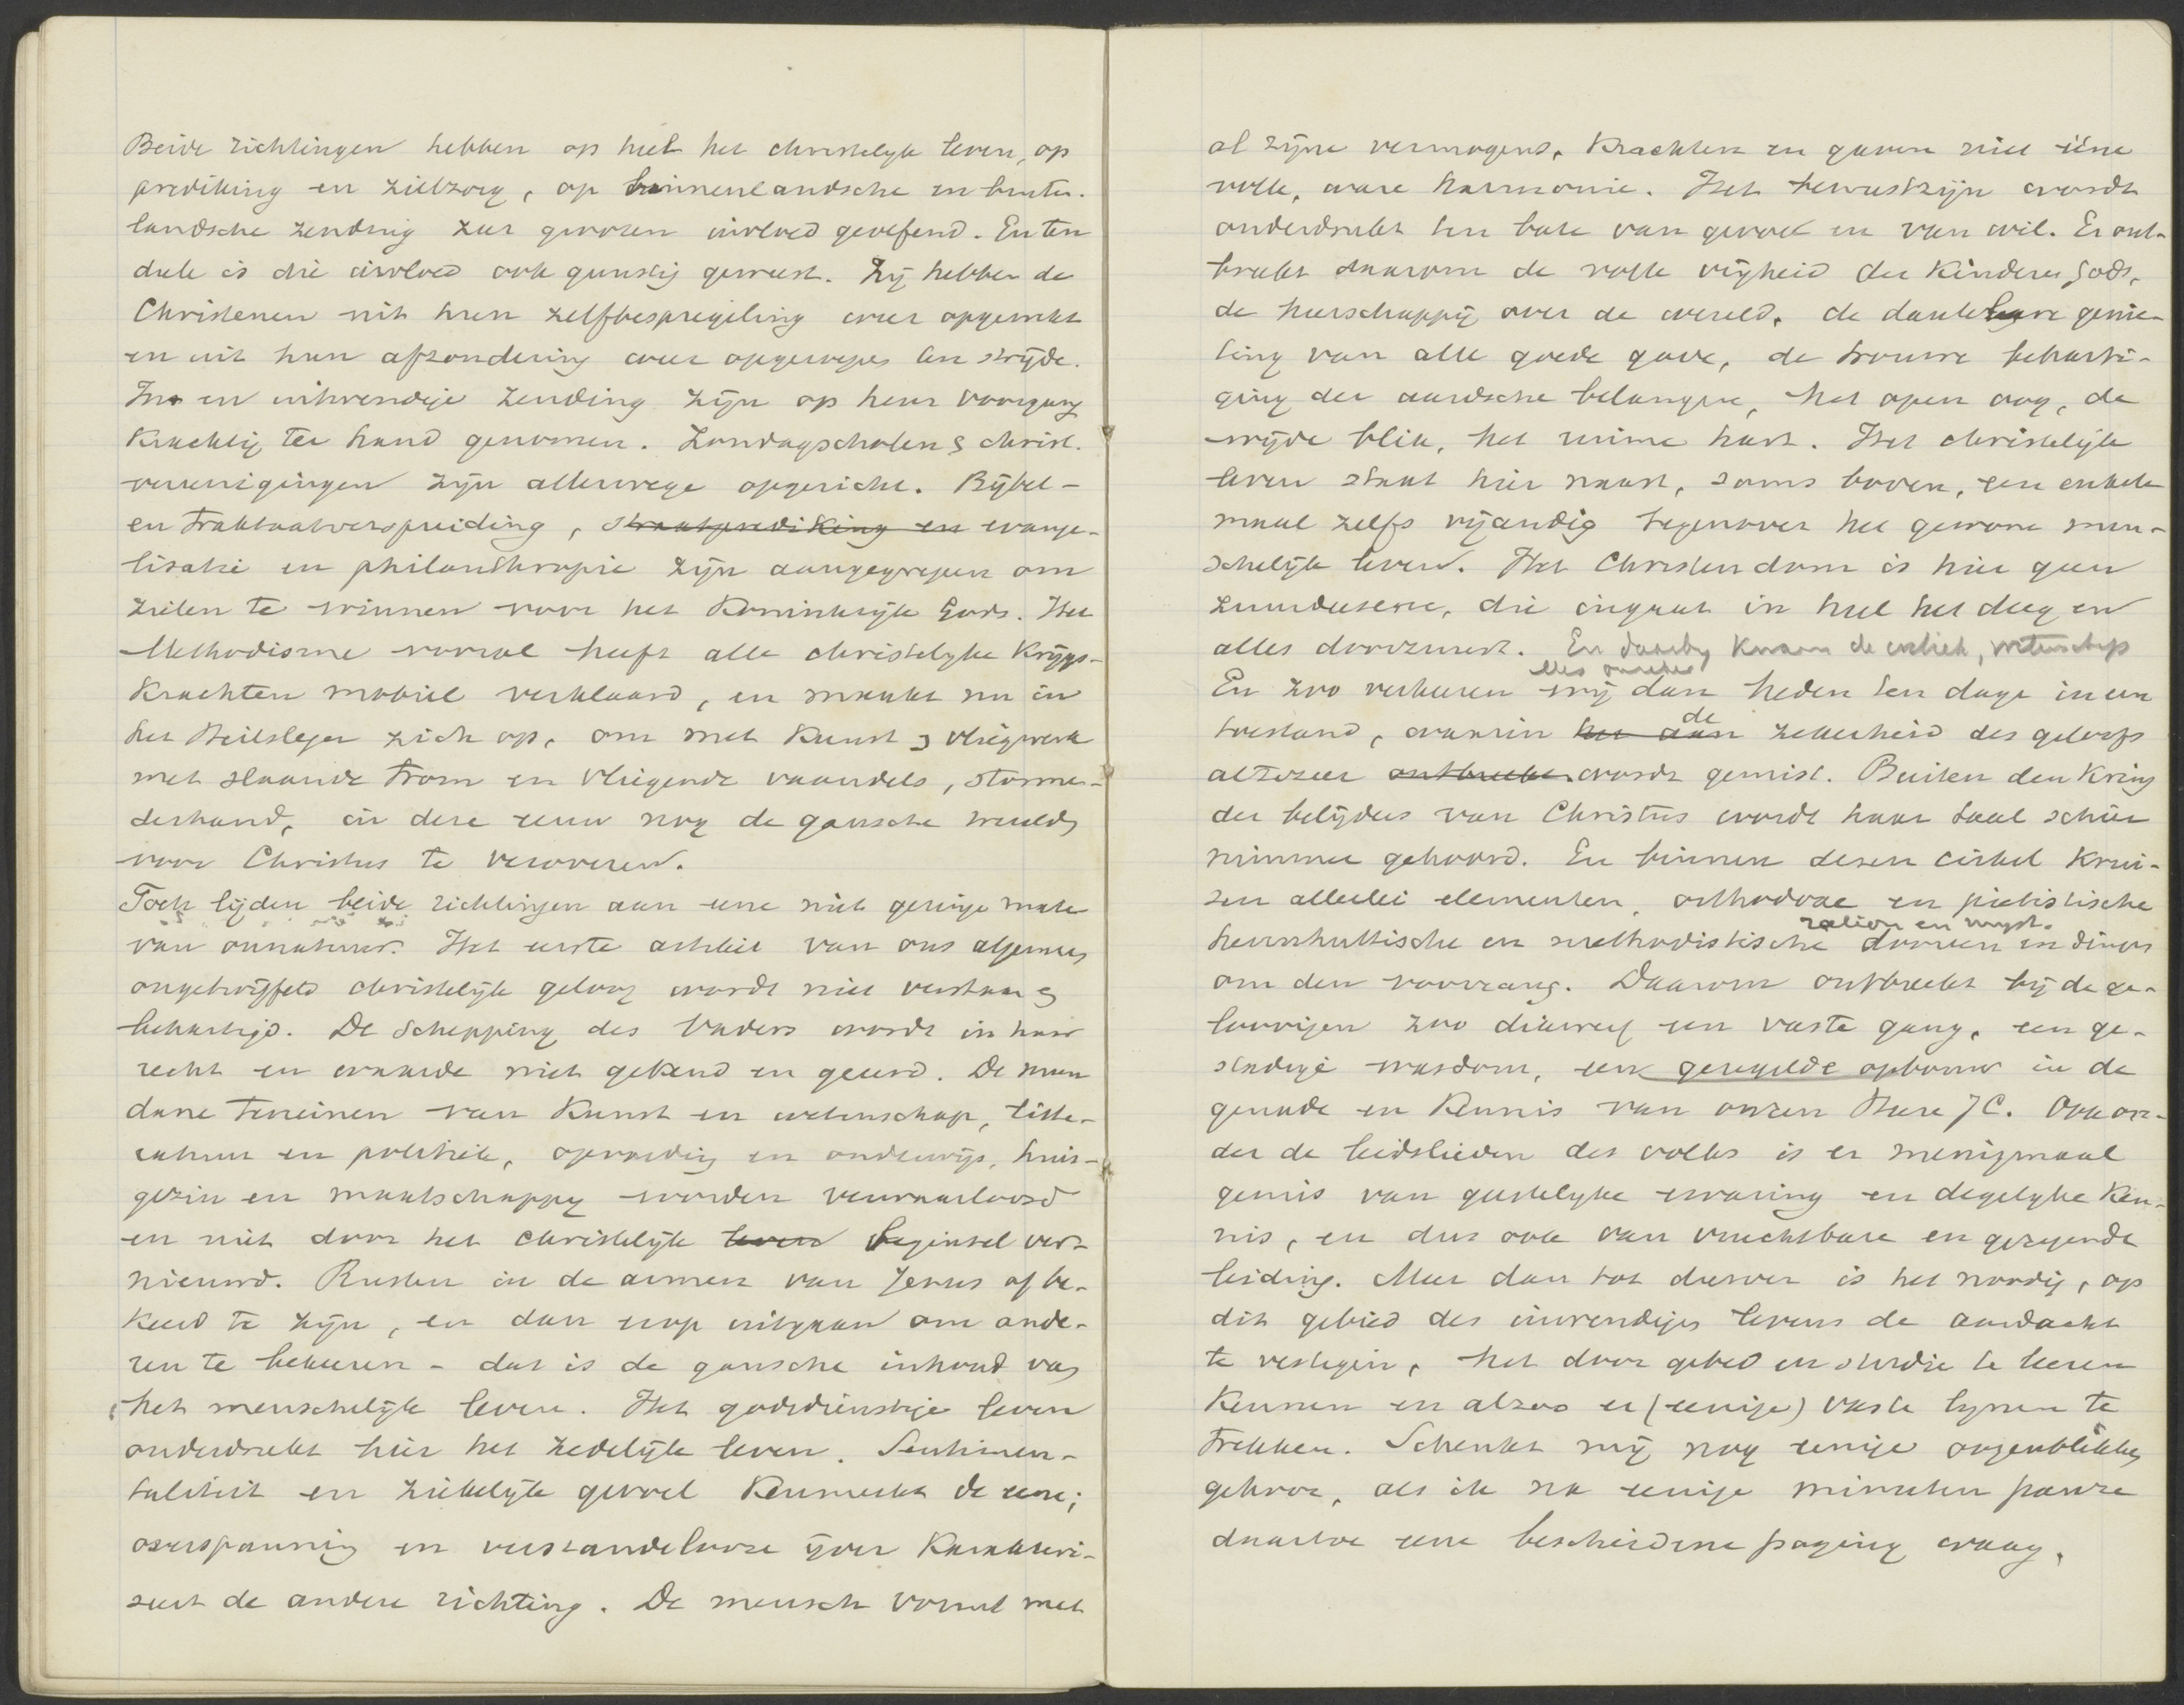 Beide richtingen hebben op heel het christelyk leven, op
prediking en zielzorg, op binnenlandsche en buiten-
landsche zending zeer grooten invloed geoefend. En ten
deele is die invloed ook gunstig geweest. Zij hebben de
Christenen uit hun zelfbespiegeling weer opgewekt
en uit hun afzondering weer opgeroepen ten strijde.
In- en uitwendige zending zijn op hun voorgang
krachtig ter hand genomen. Zondagscholen & christ.
vereenigingen zijn allerwege opgericht. Bijbel-
en traktaatverspreiding, straatprediking en evange-
lisatie en philanthropie zijn aangegrepen om
zielen te winnen voor het Koninkrijk Gods. Het
Methodisme vooral heeft alle christelyke krijgs-
krachten mobiel verklaard, en maakt nu in
het Heilsleger zich op, om met kunst & vliegwerk
met slaande trom en vliegende vaandels, stormen-
derhand, in deze eeuw nog de gansche wereld
voor Christus te veroveren.
Toch lijden beide richtingen aan eene niet geringe mate
van onnatuur. Het eerste artikel van ons algemeen
ongetwijfeld christelijk geloof wordt niet verstaan &
behartigd. De Schepping des Vaders wordt in haar
recht en waarde niet gekend en geeerd. De mun
dane terreinen van kunst en wetenschap, litte-
ratuur en politiek, opvoeding en onderwijs, huis-
gezin en maatschappy worden verwaarloosd
en niet door het christelijk leven beginsel ver-
nieuwd. Rusten in de armen van Jezus of be-
keerd te zijn, en dan erop uitgaan om ande-
ren te bekeeren - dat is de gansche inhoud van
het menschelijk leven. Het godsdienstige leven
onderdrukt hier het zedelijk leven. Sentimen-
taliteit en ziekelijk gevoel kenmerkt de eene;
overspanning en verstandelooze ijver karakteri-
seert de andere richting. De mensch vormt met
al zijne vermogens, krachten en gaven niet ééne
volle, ware harmonie. Het bewustzijn wordt
onderdrukt ten bate van gevoel en van wil. Er ont-
breekt daarom de volle vrijheid der kinderen Gods,
de heerschappij over de wereld, de dankbare genie-
ting van alle goede gave, de trouwe beharti-
ging der aardsche belangen, het open oog, de
wijde blik, het ruime hart. Het christelijk
leven staat hier naast, soms boven, een enkele
maal zelfs vijandig tegenover het gewone men-
schelijk leven. Het Christendom is hier geen
zuurdeesem, die ingaat in heel het deeg en
alles doorzuurt. En daarby komen de wetenschap
En zoo verkeeren wij dan heden ten dage in een
toestand, waarin het aan de zekerheid des geloofs
altezeer ontbreekt wordt gemist. Buiten den kring
der belijders van Christus wordt haar taal schier
nimmer gehoord. En binnen dezen cirkel krui-
sen allerlei elementen, orthodoxe en pietistische
ration en myst.
hernhuttische en methodistische dooreen en dingen
om den voorrang. Daarom ontbreekt bij de ge-
loovigen zoo dikwerf een vaste gang, een ge-
stadige wasdom, een geregelde opbouw in de
genade en kennis van onzen Heere JC. Ook on-
der de leidslieden des volks is er menigmaal
gemis van geestelyke ervaring en degelyke ken-
nis, en dus ook van vruchtbare en gezegende
leiding. Meer dan tot dusver is het noodig, op
dit gebied des inwendigen levens de aandacht
te vestigen, het door gebed en studie te leeren
kennen en alzoo er (eenige) vaste lynen te
trekken. Schenkt mij nog eenige oogenblikken
gehoor, als ik na eenige minuten pauze
daartoe eene bescheidene poging waag.